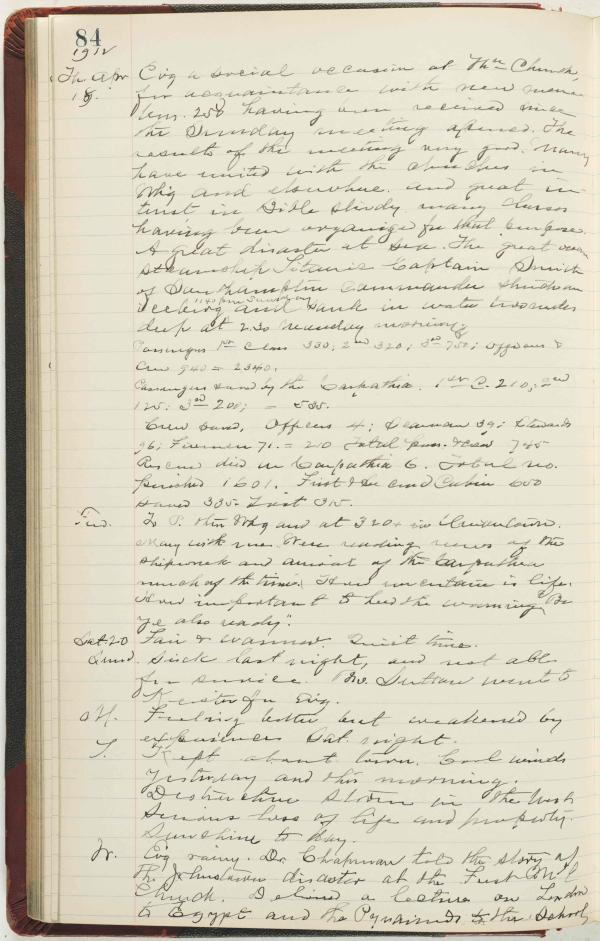 84
1912
Th. Apr Evg a social occasion at Thn Church,
18. for acquaintance with new mem
bers. 258 having been received since
the Sunday meeting opened. The
results of the meeting very good. Many
have united with the churches in
Whg and elsewhere. and great in
terest in Bible study. many classes
having been organized for that purpose.
A great disaster at sea. The great ocean
steamship Titanic Captain Smith
of Southampton Commander struck an
1140 pm Sunday
iceberg and sank in water two miles
deep at 2.20 Monday morning
Passengers 1st Class 330; 2nd 320; 3rd 750; Officers &
Crew 940 = 2340.
Passengers saved by the Carpathia. 1st C. 210; 2nd
125; 3rd 200; = 535.
Crew saved, Officers 4; Seaman 39; Stewards
96; Firemen 71. = 210 Total pass. & Crew 745
Rescued died on Carpathia 6. Total no.
perished 1601. First & Second Cabin 650
saved 335. Lost 315.
Frid. To Whg and at 320
Mary with me. Were reading news of the
shipwreck and arrival of the Carpathia
much of the time. How uncertain is life.
How important to heed the warning "Be
ye also ready".
Sat. 20 Fair & warmer. Quiet time.
Sund. Sick last night, and not able
for service. Bro. went to
for Evg.
M. Feeling better but weakened by
experiences Sat. night.
T. Kept about town. Cool winds
yesterday and this morning.
Destructive storm in the West
Serious loss of life and property.
Sunshine to day.
W. Evg rainy. Dr. Chapman told the story of
the Johnstown disaster at the First M E
Church. Delivered a lecture on London
to Egypt and the Pyramids to the School